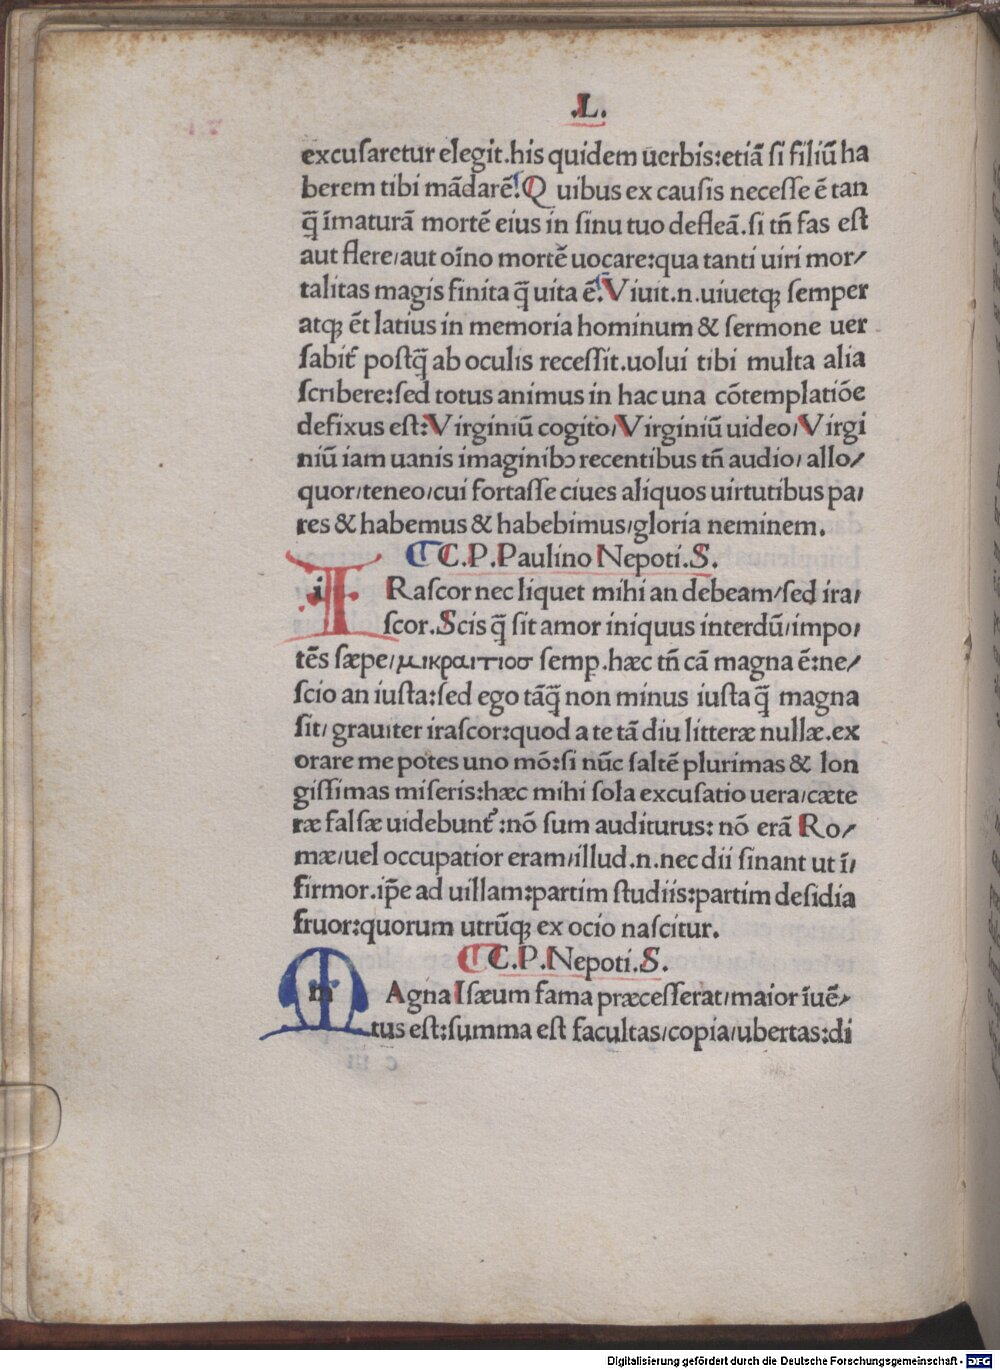 .L.
excuſaretur elegit.his quidem uerbis:etiã ſi filiũ ha
berem tibi mãdarẽ. Q uibus ex cauſis neceſſe ẽ tan
q̃ ĩmaturã mortẽ eius in ſinu tuo defleã.ſi tñ fas eſt
aut flere/aut oĩno mortẽ uocare:qua tanti uiri mor/
talitas magis finita q̃ uita ẽ. Viuit.n.uiuetqꝫ ſemper
atqꝫ ẽt latius in memoria hominum & ſermone uer
ſabit᷑ poſtq̃ ab oculis receſſit.uolui tibi multa alia
ſcribere:ſed totus animus in hac una cõtemplatiõe
defixus eſt:Virginiũ cogito/Virginiũ uideo/Virgi
niũ iam uanis imaginibꝰ recentibus tñ audio/allo/
quor/teneo/cui fortaſſe ciues aliquos uirtutibus pa/
res & habemus & habebimus/gloria neminem.
C.P.Paulino Nepoti.S.
i Raſcor nec liquet mihi an debeam/ſed ira/
ſcor.Scis q̃ ſit amor iniquus interdũ/impo/
tẽs ſæpe/μικραιτιοσ ſemꝑ.hæc tñ cã magna ẽ:ne/
ſcio an iuſta:ſed ego tãq̃ non minus iuſta q̃ magna
ſit/grauiter iraſcor:quod a te tã diu litteræ nullæ.ex
orare me potes uno mõ:ſi nũc ſaltẽ plurimas & lon
giſſimas miſeris:hæc mihi ſola excuſatio uera/cæte
ræ falſæ uidebunt᷑:nõ ſum auditurus: nõ erã Ro/
mæ/uel occupatior eram/illud.n.nec dii ſinant ut ĩ/
firmor.ip̃e ad uillam:partim ſtudiis:partim deſidia
fruor:quorum utrũqꝫ ex ocio naſcitur.
C.P.Nepoti.S.
m Agna Iſæum fama præceſſerat/maior ĩuẽ/
tus eſt:ſumma eſt facultas/copia/ubertas:di
Digitalisierung gefördert durch die Deutsche Forschungsgemeinschaft - DFG